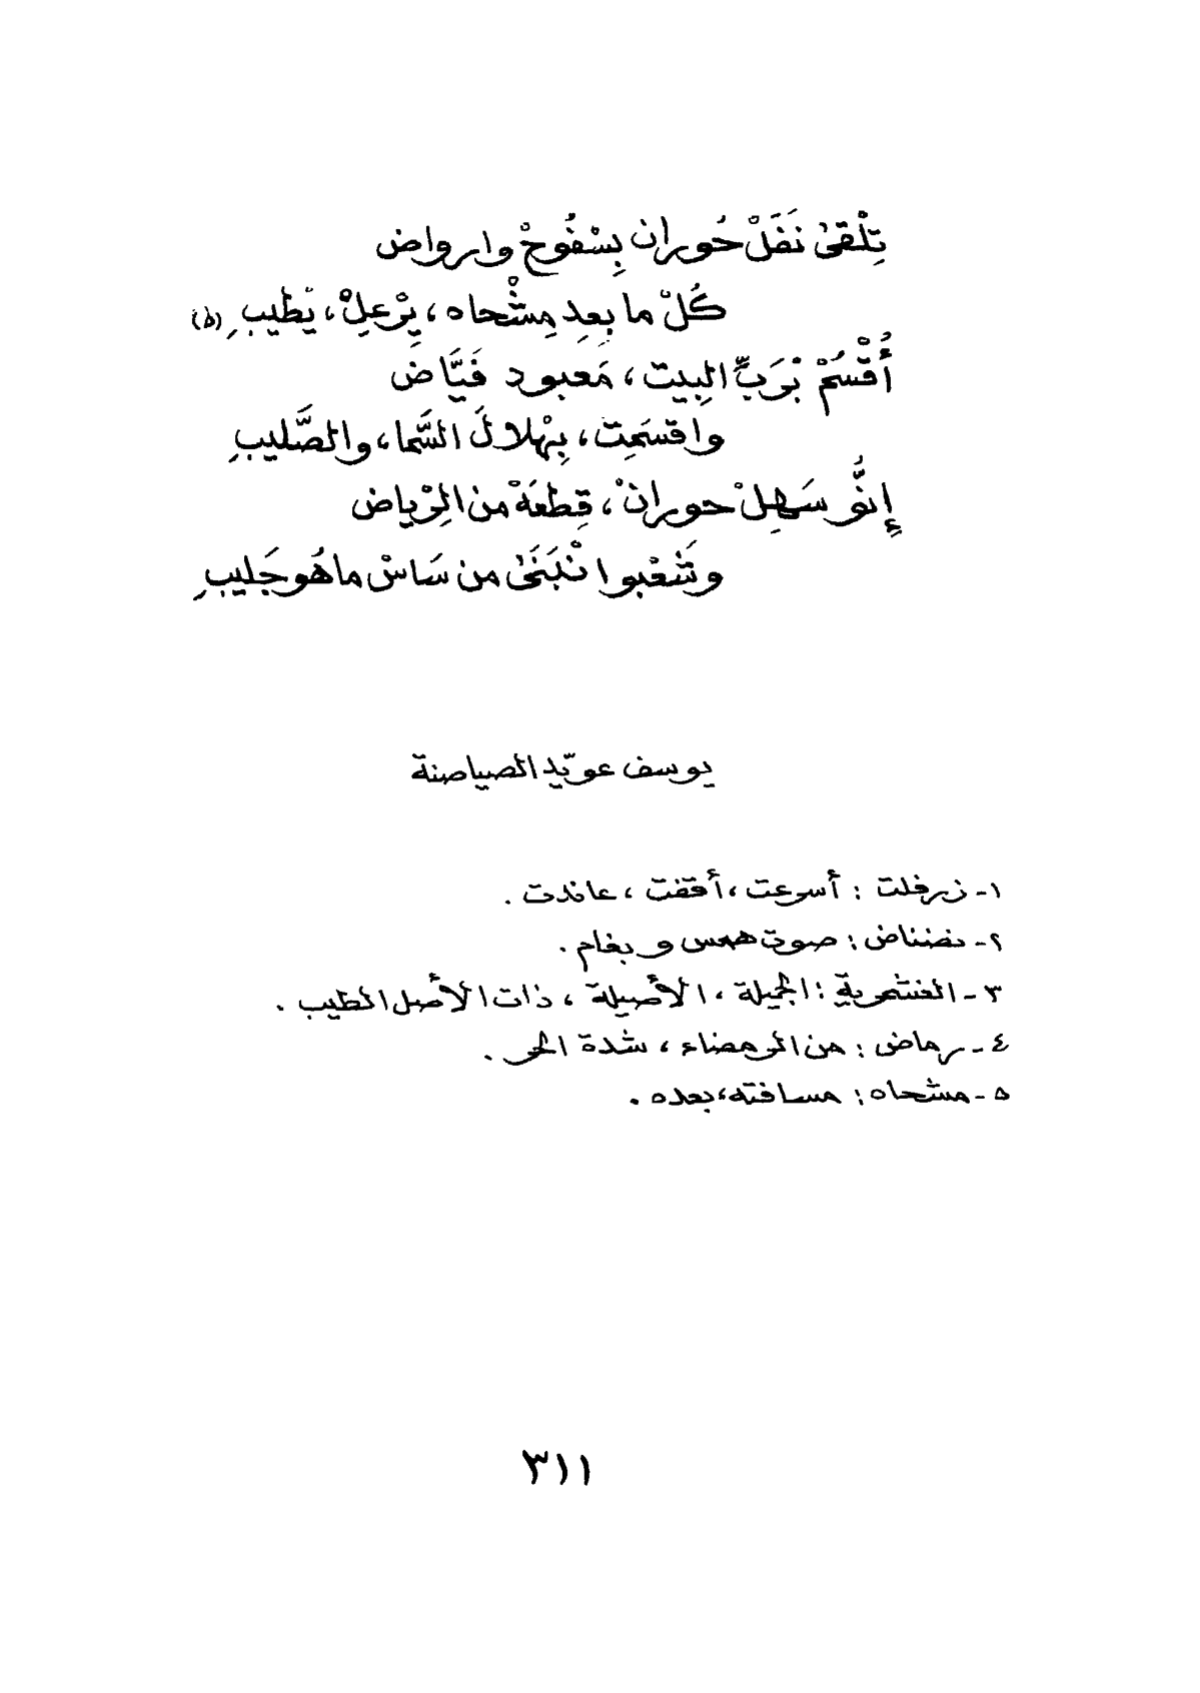 تِلْقىٰ نَفَلْ حُوران بِسْفُوحْ وارواض
كُلْ ما بعِدِ مِشْحاه، يِرْعِلْ، يْطيبِ (٥)
أُقْسُمْ بْرَبِّ البيت، مَعبود فَيَّاض
واقسَمِت، بِهْلالَ السَّما، والصَّليبِ
إِنَّو سَهِلْ حورانْ، قِطعَهْ من الِرْياض
وشَعْبوا نْبَنَىٰ من سَاسْ ما هُو جَليبِ
يوسف عويّد الصياصنة
١- زرفلت: أسرعت، أقفت، عاندت.
٢- نضناض: صوت همس وبغام.
٣- العنشمرية: الجميلة، الأصيلة، ذات الأصل الطيب.
٤- رماض: من الرمضاء، شدة الحر.
٥- مشحاه: مسافته، بعده.
٣١١